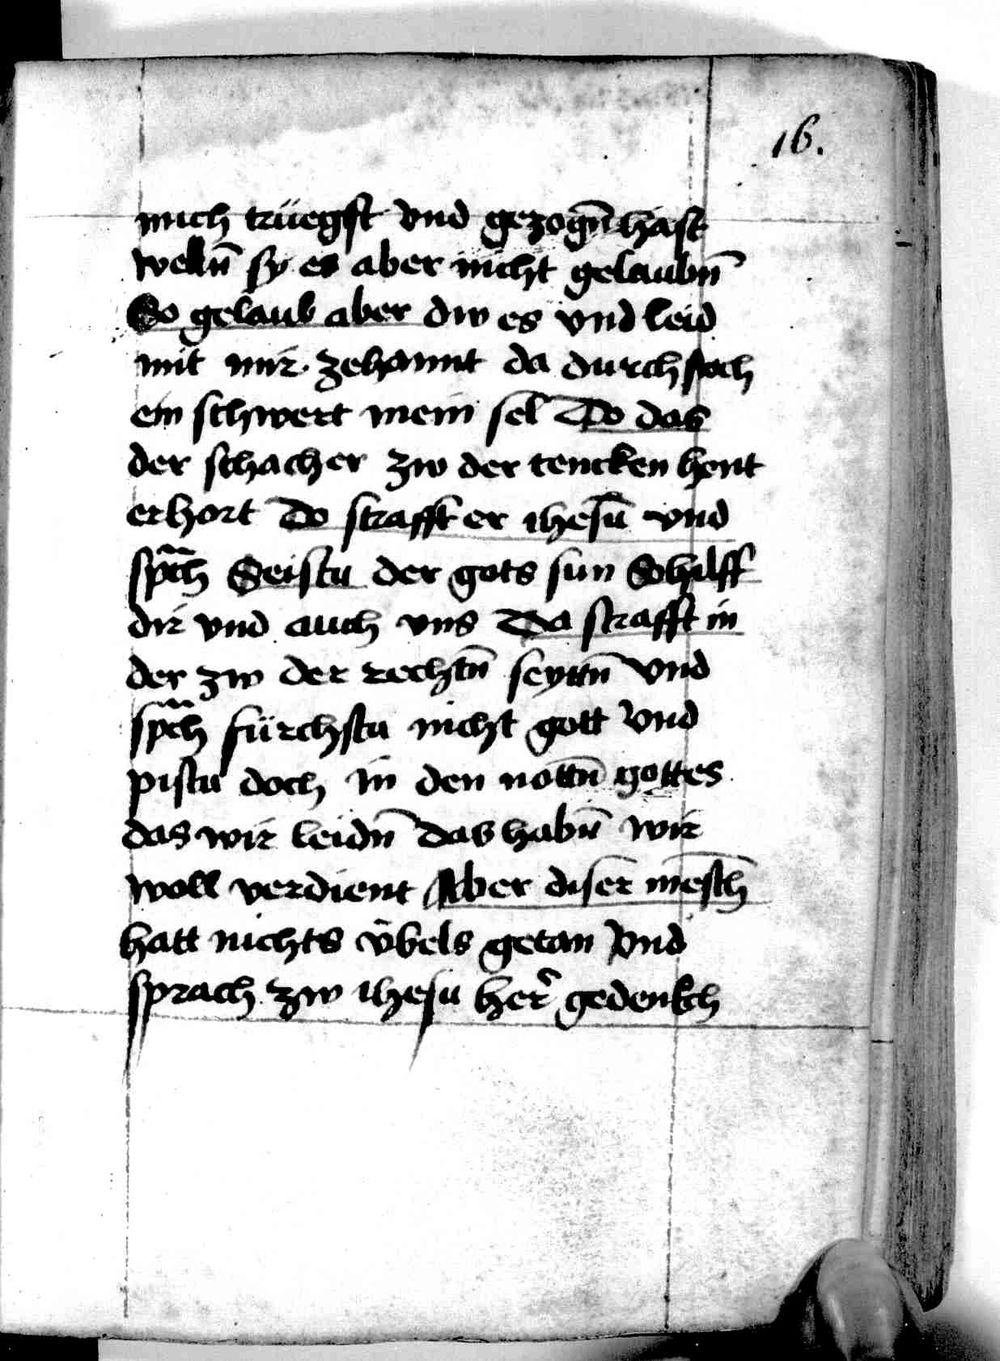 16.
mich trüegst vnd gezogn̄ hast
welln̄ sy es aber nicht gelaubn̄
So gelaub aber dw es vnd leid
mit mir. zehannt da durch stoch
ein schwert mein sel Do das
der schacher zw der tencken hent
erhort Do strafft er ihesū vnd
sp̄ch Seistu der gots sun So hilff
dir vnd auch vns Da strafft in
der zw der rechtn̄ seyttn̄ vnd
sp̄ch fürchstu nicht gott vnd
pistu doch in den nottn̄ gottes
das wir leidn̄ das habn̄ wir
woll verdient Aber diser mēsch
hatt nichts v̈bels getan vnd
sprach zw ihesu her̄ gedenkch